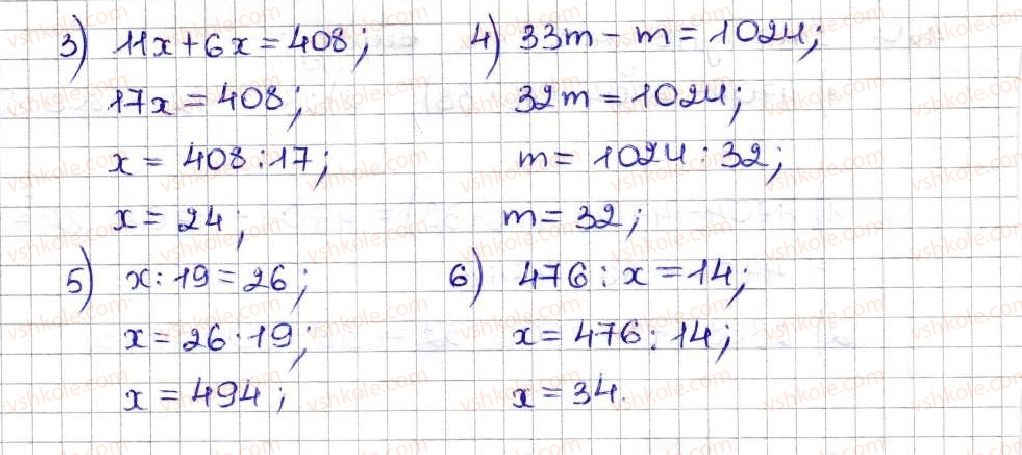 3) 11x + 6x = 408; 4) 33m - m = 1024;
17x = 408; 32m = 1024;
x = 408 : 17; m = 1024 : 32;
x = 24; m = 32;
5) x : 19 = 26; 6) 476 : x = 14;
x = 26 · 19; x = 476 : 14;
x = 494; x = 34.
vshkole.com